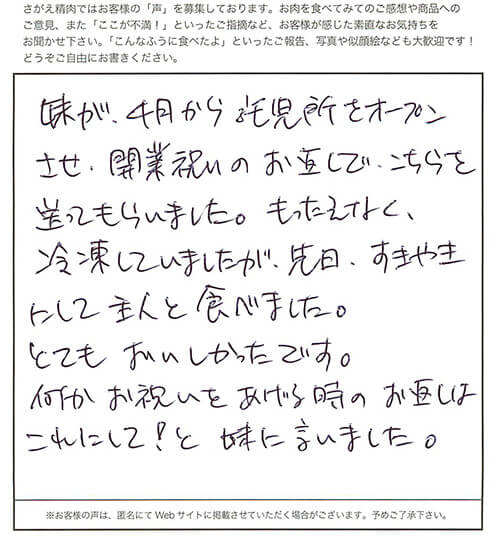 さがえ精肉ではお客様の「声」を募集しております。お肉を食べてみてのご感想や商品への
ご意見、また「ここが不満！」といったご指摘など、お客様が感じた素直なお気持ちを
お聞かせ下さい。「こんなふうに食べたよ」といったご報告、写真や似顔絵なども大歓迎です！
どうぞご自由にお書きください。
妹が、4月から託児所をオープン
させ、開業祝いのお返しで、こちらを
送ってもらいました。もったえなく、
冷凍していましたが、先日、すきやき
にして主人と食べました。
とてもおいしかったです。
何かお祝いをあげる時のお返しは
これにして！と妹に言いました。
※お客様の声は、匿名にてWebサイトに掲載させていただく場合がございます。予めご了承下さい。